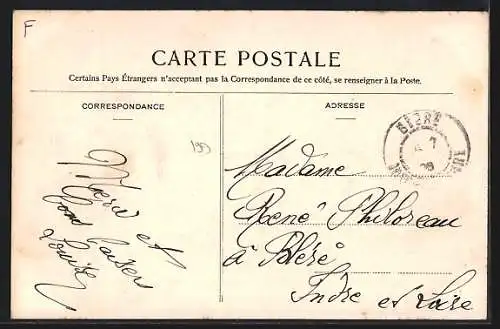 F
CARTE POSTALE
Certains Pays Étrangers n'acceptent pas la Correspondance de ce côté, se renseigner à la Poste.
CORRESPONDANCE
ADRESSE
Merci et
bon baiser
Louise
Madame
René Philoreau
à Bléré
Indre et Loire